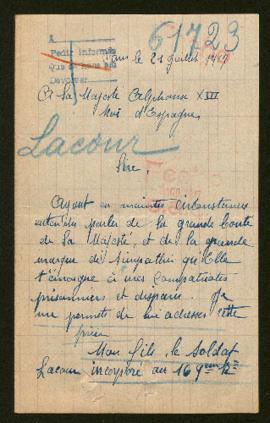 61723
A
Pedir informes
Devolver
Paris le 21 juillet
A Sa Majesté Alphonse XIII
Roi d'Espagne
Lacour
Sire,
Ayant en maintes circonstances
entendu parler de la grande bonté
de Sa Majesté, et de la grande
marque de simpathie qu'Elle
témoigne à mes compatriotes
prisonniers et disparus. Je
me permets de lui adresser cette
prière
Mon fils, le soldat
Lacour incorporé au 169